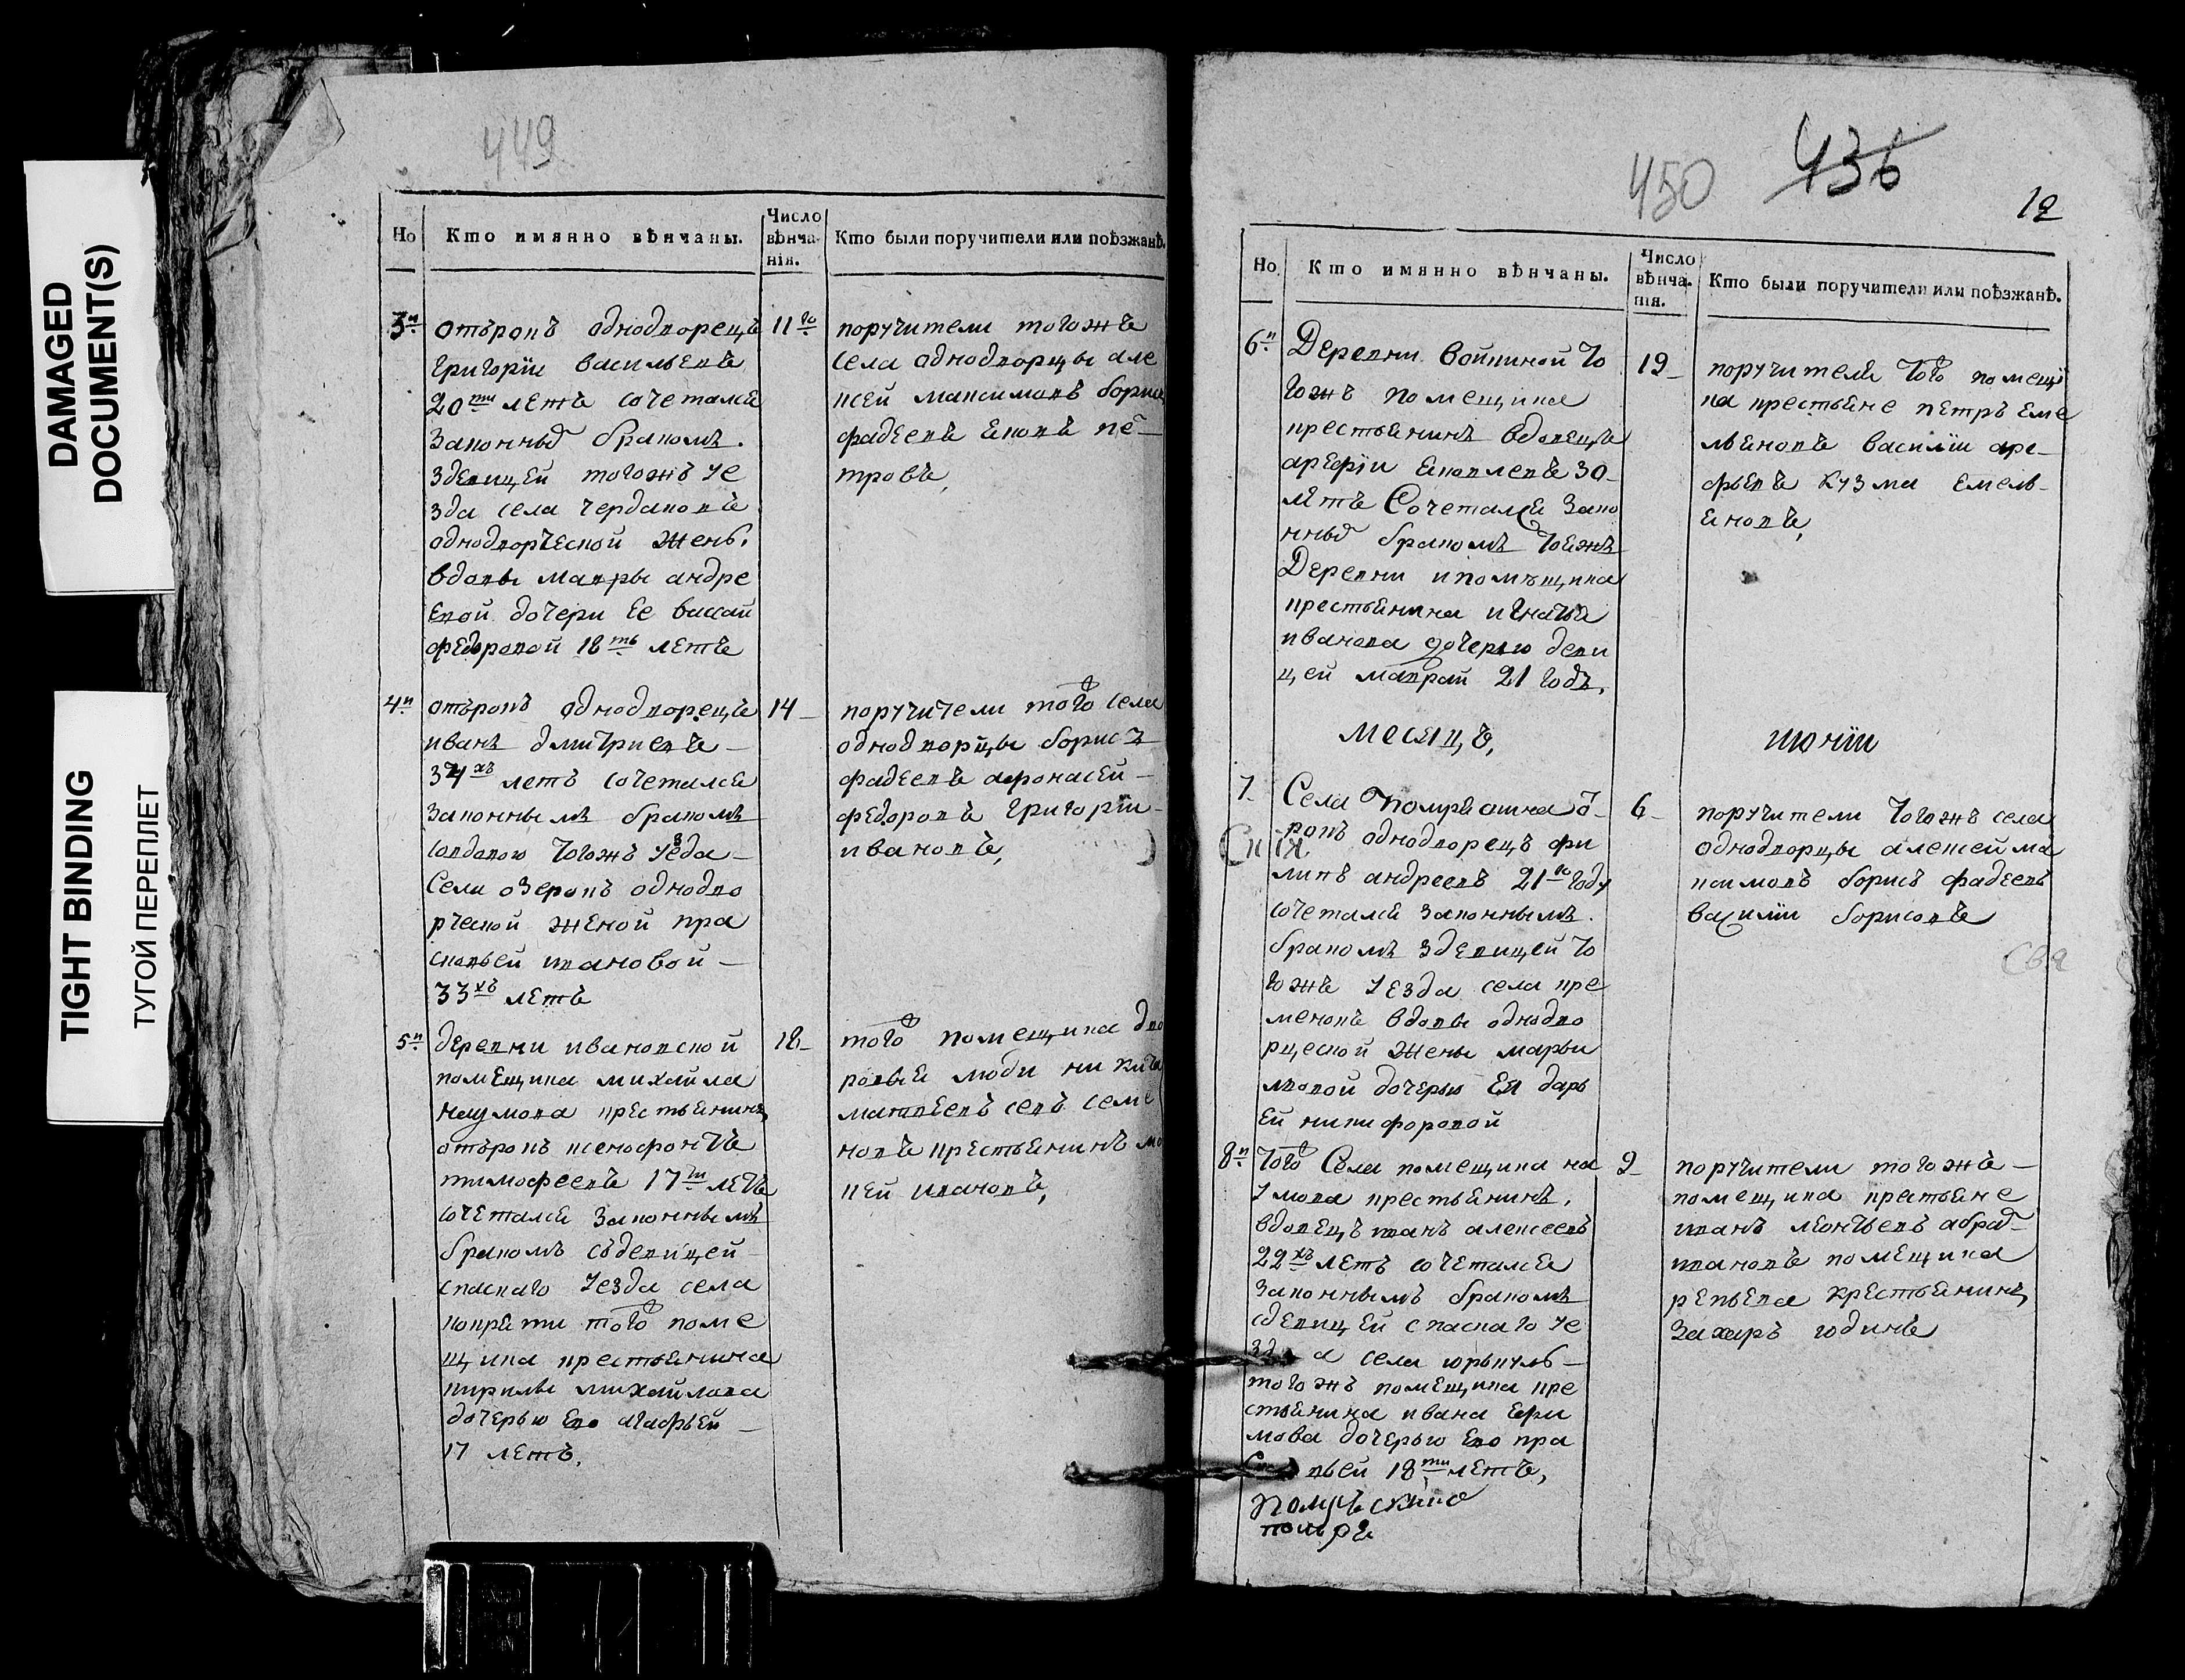 DAMAGED
DOCUMENT(S)
TIGHT BINDING
ТУГОЙ ПЕРЕПЛЕТ
449
Но
Кто имянно вѣнчаны.
Число
вѣнча-
нія.
Кто были поручители или поѣзжанѣ.
3й
отърокъ однодворецъ
григорїи васильевъ
20ти летъ сочетался
законны бракомъ.
здевицей тогожъ уе
зда села чердаковъ
однодворческой жены
вдовы мавры андре
евой дочери ее вассай
федоровой 18ть летъ
11го
поручители тогожъ
села однодворцы але
ксей максимовъ борисъ
фадеевъ яковъ пе-
тровъ,
4й
отърокъ однодворецъ
иванъ дмитриевъ
34хъ летъ сочетался
законнымъ бракомъ
совдовою тогожъ уезда
села озерокъ однодво
рческой женой пра
сковьей ивановой
33хъ летъ
14
поручители того села
однодворцы борисъ
фадеевъ афонасей
федоровъ григории
ивановъ,
5й
деревни ивановской
помещика михайла
наумова крестьянинъ
отърокъ ксенофонтъ
тимофеевъ 17ти летъ
сочетался законнымъ
бракомъ съдевицей
спаскаго уезда села
того поме
щика крестьянина
кирилы михайлова
дочерью ево агафьей
17 летъ,
18
того помещика дво
ровыя люди никита
матвеевъ семе
новъ крестьянинъ мо
кей ивановъ,
450
436
12
Но
Кто имянно вѣнчаны.
Число
вѣнча-
нія.
Кто были поручители или поѣзжанѣ.
6й
Деревни войкиной то
гожъ помещика
крестьянинъ вдовецъ
арефїи яковлевъ 30
летъ сочетался зако
нны бракомъ тояжъ
Деревни ипомѣщика
крестьянина игнатья
иванова дочерью деви
цей маврай 21 годъ,
19
поручители того помещи
ка крестьяне петръ еме
льяновъ василїи аре
фьевъ кузма емель
яновъ,
месяцъ,
июнїи
7
Села о
рокъ однодворецъ фи
липъ андреевъ 21го году
сочетался законнымъ
бракомъ здевицей то
гожъ уезда села кре
меновъ вдовы однодво
рцеской жены марьи
львовой дочерью ея дарь
ей никифоровой
6
поручители тогожъ села
однодворцы алексей ма
ксимовъ борисъ фадеевъ
василїи борисовъ
8й
того Села помещика на
умова крестьянинъ,
вдовецъ иванъ алексеевъ
22хъ летъ сочетался
законнымъ бракомъ
сдевицей спаскаго уе
зда села юрькуль
тогожъ помещика кре
стьянина ивана ефи
мова дочерью ево пра
сковьей 18ти летъ,
9
поручители тогожъ
помещика крестьяне
иванъ леонтьевъ абрамъ
ивановъ помещика
репьева крестьянинъ
захаръ годинъ